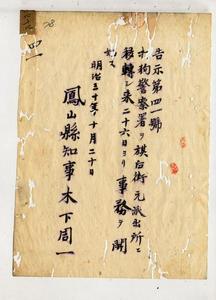 告示第四一號
十拘警察署ヲ旗后街元派出所ニ
移轉シ来二十六日ヨリ事務ヲ開
始ス
明治三十年十月二十日
鳳山縣知事木下周一